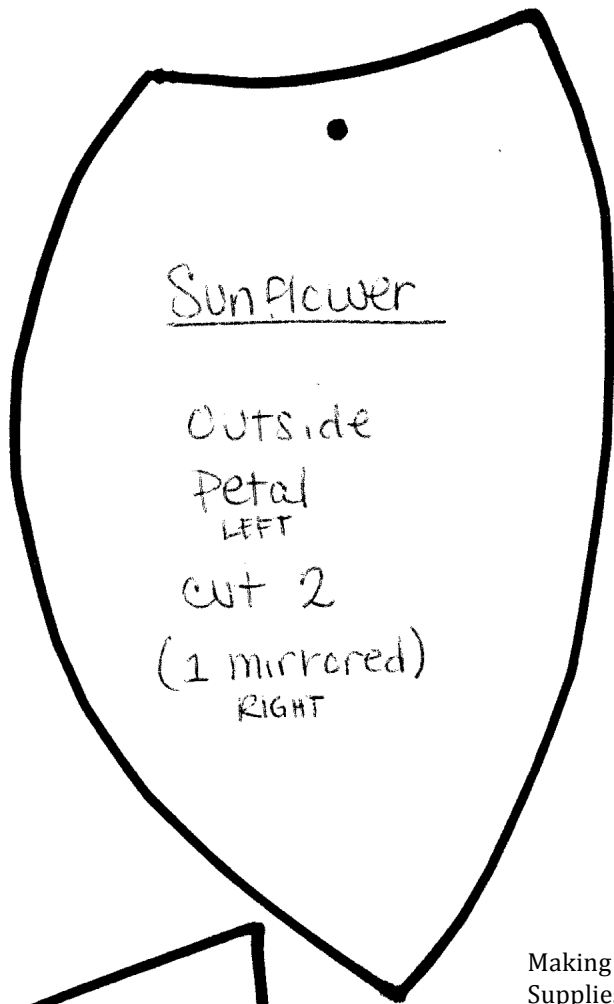 Sunflower
Outside
Petal
LEFT
cut 2
(1 mirrored)
RIGHT
Making
Supplie